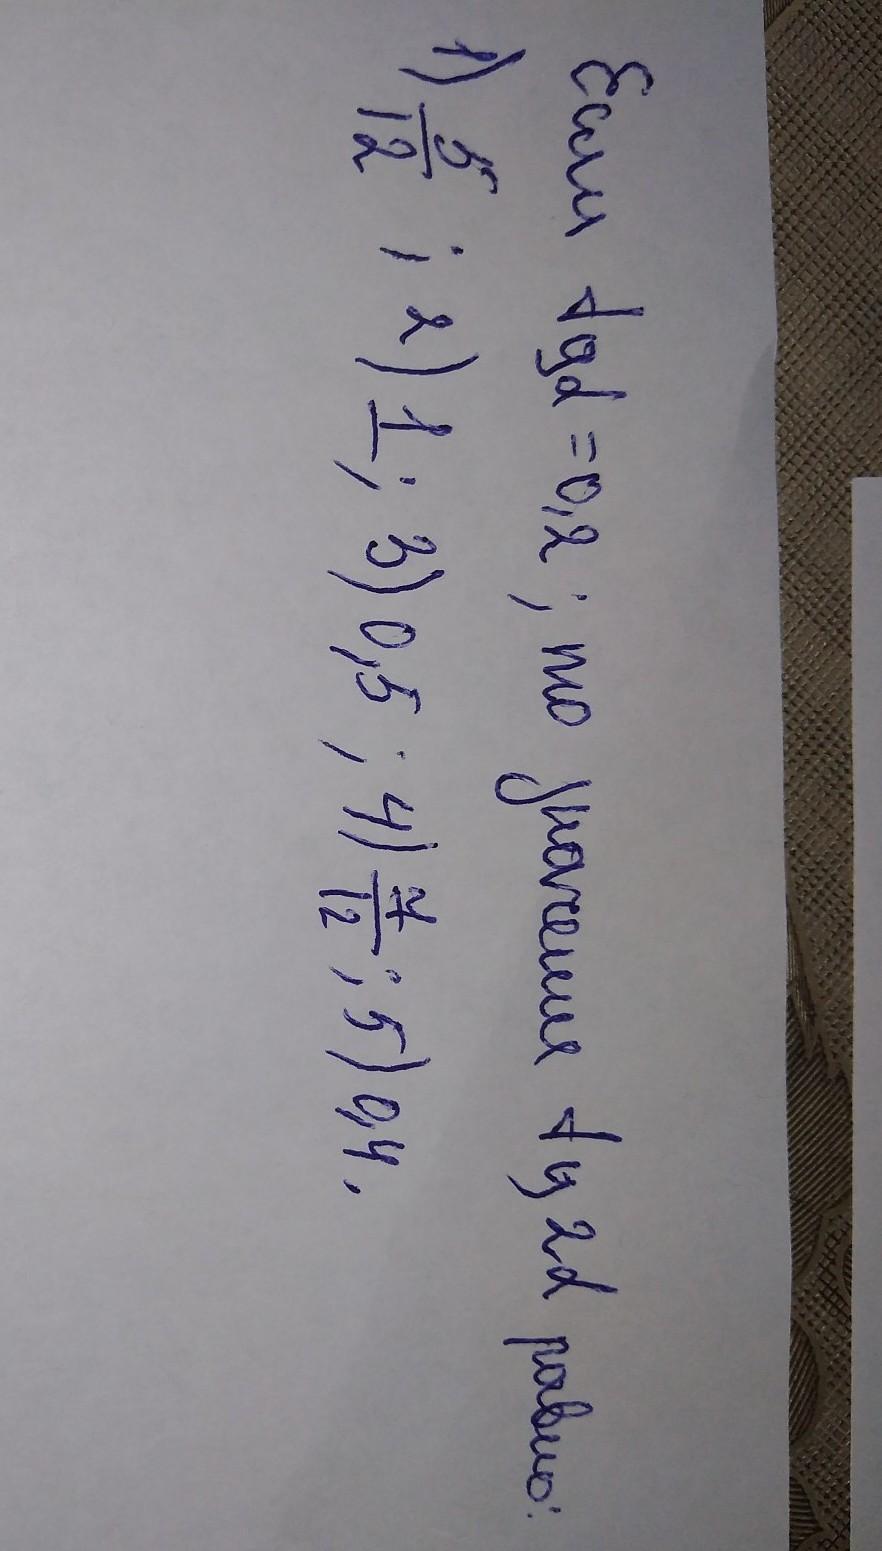 Если tgα = 0,2; то значение tg 2α равно:
1) 5/12 ; 2) 1/ ; 3) 0,5 ; 4) 7/12 ; 5) 0,4.